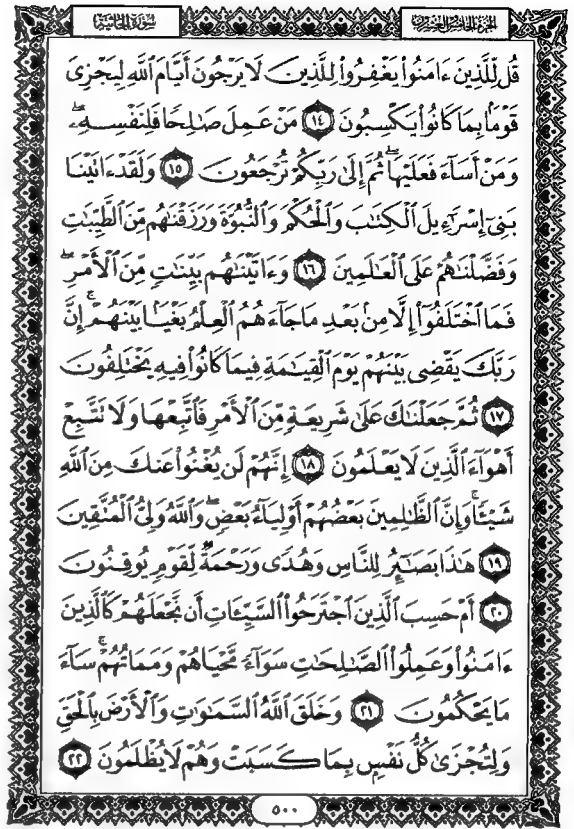 سورة الجاثية
الجزء الخامس والعشرون
قُل لِّلَّذِينَ ءَامَنُوا۟ يَغْفِرُوا۟ لِلَّذِينَ لَا يَرْجُونَ أَيَّامَ ٱللَّهِ لِيَجْزِىَ
قَوْمًۢا بِمَا كَانُوا۟ يَكْسِبُونَ ١٤ مَنْ عَمِلَ صَٰلِحًا فَلِنَفْسِهِۦ ۖ
وَمَنْ أَسَآءَ فَعَلَيْهَا ۖ ثُمَّ إِلَىٰ رَبِّكُمْ تُرْجَعُونَ ١٥ وَلَقَدْ ءَاتَيْنَا
بَنِىٓ إِسْرَٰٓءِيلَ ٱلْكِتَٰبَ وَٱلْحُكْمَ وَٱلنُّبُوَّةَ وَرَزَقْنَٰهُم مِّنَ ٱلطَّيِّبَٰتِ
وَفَضَّلْنَٰهُمْ عَلَى ٱلْعَٰلَمِينَ ١٦ وَءَاتَيْنَٰهُم بَيِّنَٰتٍ مِّنَ ٱلْأَمْرِ ۖ
فَمَا ٱخْتَلَفُوٓا۟ إِلَّا مِنۢ بَعْدِ مَا جَآءَهُمُ ٱلْعِلْمُ بَغْيًۢا بَيْنَهُمْ ۚ إِنَّ
رَبَّكَ يَقْضِى بَيْنَهُمْ يَوْمَ ٱلْقِيَٰمَةِ فِيمَا كَانُوا۟ فِيهِ يَخْتَلِفُونَ
١٧ ثُمَّ جَعَلْنَٰكَ عَلَىٰ شَرِيعَةٍ مِّنَ ٱلْأَمْرِ فَٱتَّبِعْهَا وَلَا تَتَّبِعْ
أَهْوَآءَ ٱلَّذِينَ لَا يَعْلَمُونَ ١٨ إِنَّهُمْ لَن يُغْنُوا۟ عَنكَ مِنَ ٱللَّهِ
شَيْـًٔا ۚ وَإِنَّ ٱلظَّٰلِمِينَ بَعْضُهُمْ أَوْلِيَآءُ بَعْضٍ ۖ وَٱللَّهُ وَلِىُّ ٱلْمُتَّقِينَ
١٩ هَٰذَا بَصَٰٓئِرُ لِلنَّاسِ وَهُدًى وَرَحْمَةٌ لِّقَوْمٍ يُوقِنُونَ
٢٠ أَمْ حَسِبَ ٱلَّذِينَ ٱجْتَرَحُوا۟ ٱلسَّيِّـَٔاتِ أَن نَّجْعَلَهُمْ كَٱلَّذِينَ
ءَامَنُوا۟ وَعَمِلُوا۟ ٱلصَّٰلِحَٰتِ سَوَآءً مَّحْيَاهُمْ وَمَمَاتُهُمْ ۚ سَآءَ
مَا يَحْكُمُونَ ٢١ وَخَلَقَ ٱللَّهُ ٱلسَّمَٰوَٰتِ وَٱلْأَرْضَ بِٱلْحَقِّ
وَلِتُجْزَىٰ كُلُّ نَفْسٍۭ بِمَا كَسَبَتْ وَهُمْ لَا يُظْلَمُونَ ٢٢
٥٠٠